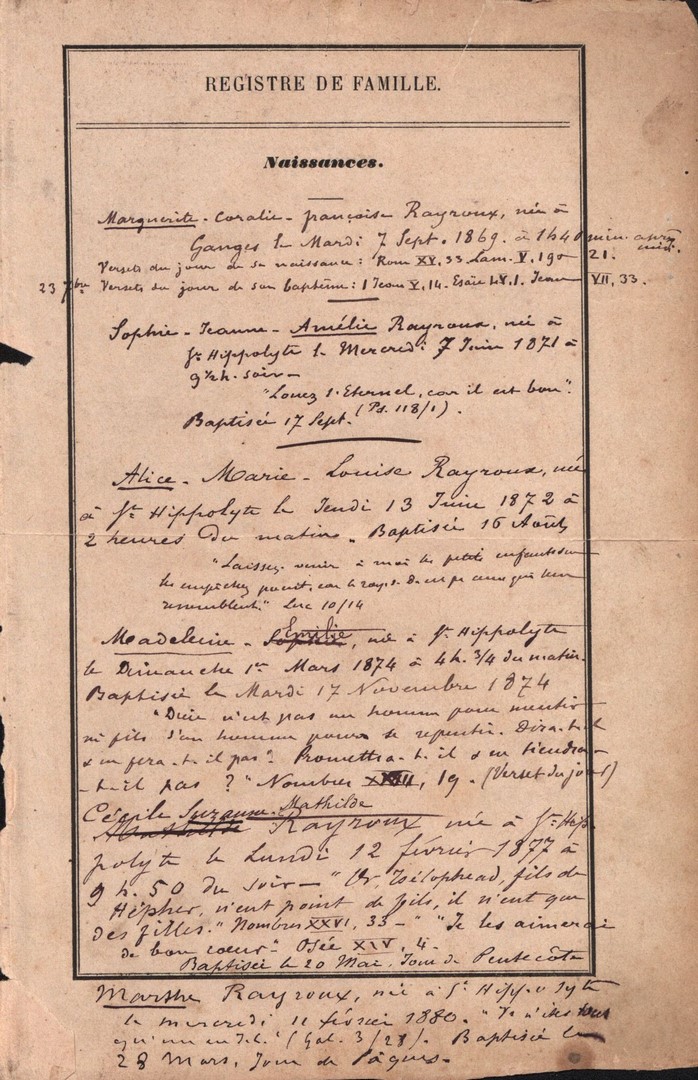 REGISTRE DE FAMILLE.
Naissances.
Marguerite - Coralie - françoise Rayroux, née à
Ganges le Mardi 7 Sept. 1869. à 1h40 min. après midi.
Versets du jour de sa naissance : Rom XV, 33. Lam. V, 19 21.
23 7bre Versets du jour de son baptême : 1 Jean V, 14. Esaïe LV. 1. Jean VII, 33.
Sophie - Jeanne - Amélie Rayroux, née à
St Hippolyte le Mercredi 7 Juin 1871 à
9½h. soir -
"Louez l'Eternel, car il est bon".
(Ps. 118/1).
Baptisée 17 Sept.
Alice - Marie - Louise Rayroux, née
à St Hippolyte le Jeudi 13 Juin 1872 à
2 heures du matin. Baptisée 16 Août
"Laissez venir à moi les petits enfants
les empêchez point, car le roy. de
ressemblent." Luc 10/14
Madeleine - Sophie Emilie, née à St Hippolyte
le Dimanche 1er Mars 1874 à 4h. 3/4 du matin.
Baptisée le Mardi 17 Novembre 1874
"Dieu n'est pas un homme pour mentir
ni fils d'un homme pour se repentir. Dira-t-il
& ne fera-t-il pas ? Promettra-t-il & ne tiendra-
-t-il pas ?" Nombres XXIII, 19. (Verset du jour)
Cécile Suzanne Mathilde
Rayroux née à St Hip-
polyte le Lundi 12 février 1877 à
9 h. 50 du soir - "Or, Tsélophcad, fils de
Hépher, n'eut point de fils, il n'eut que
des filles." Nombres XXVI, 33 - "Je les aimerai
de bon cœur." Osée XIV, 4.
Baptisée le 20 Mai. Jour de Pentecôte
Marthe Rayroux, née à St Hippolyte
le mercredi 11 février 1880. "Vous n'êtes tous
qu'un en J.C." (Gal. 3/28). Baptisée le
28 Mars, Jour de Pâques.